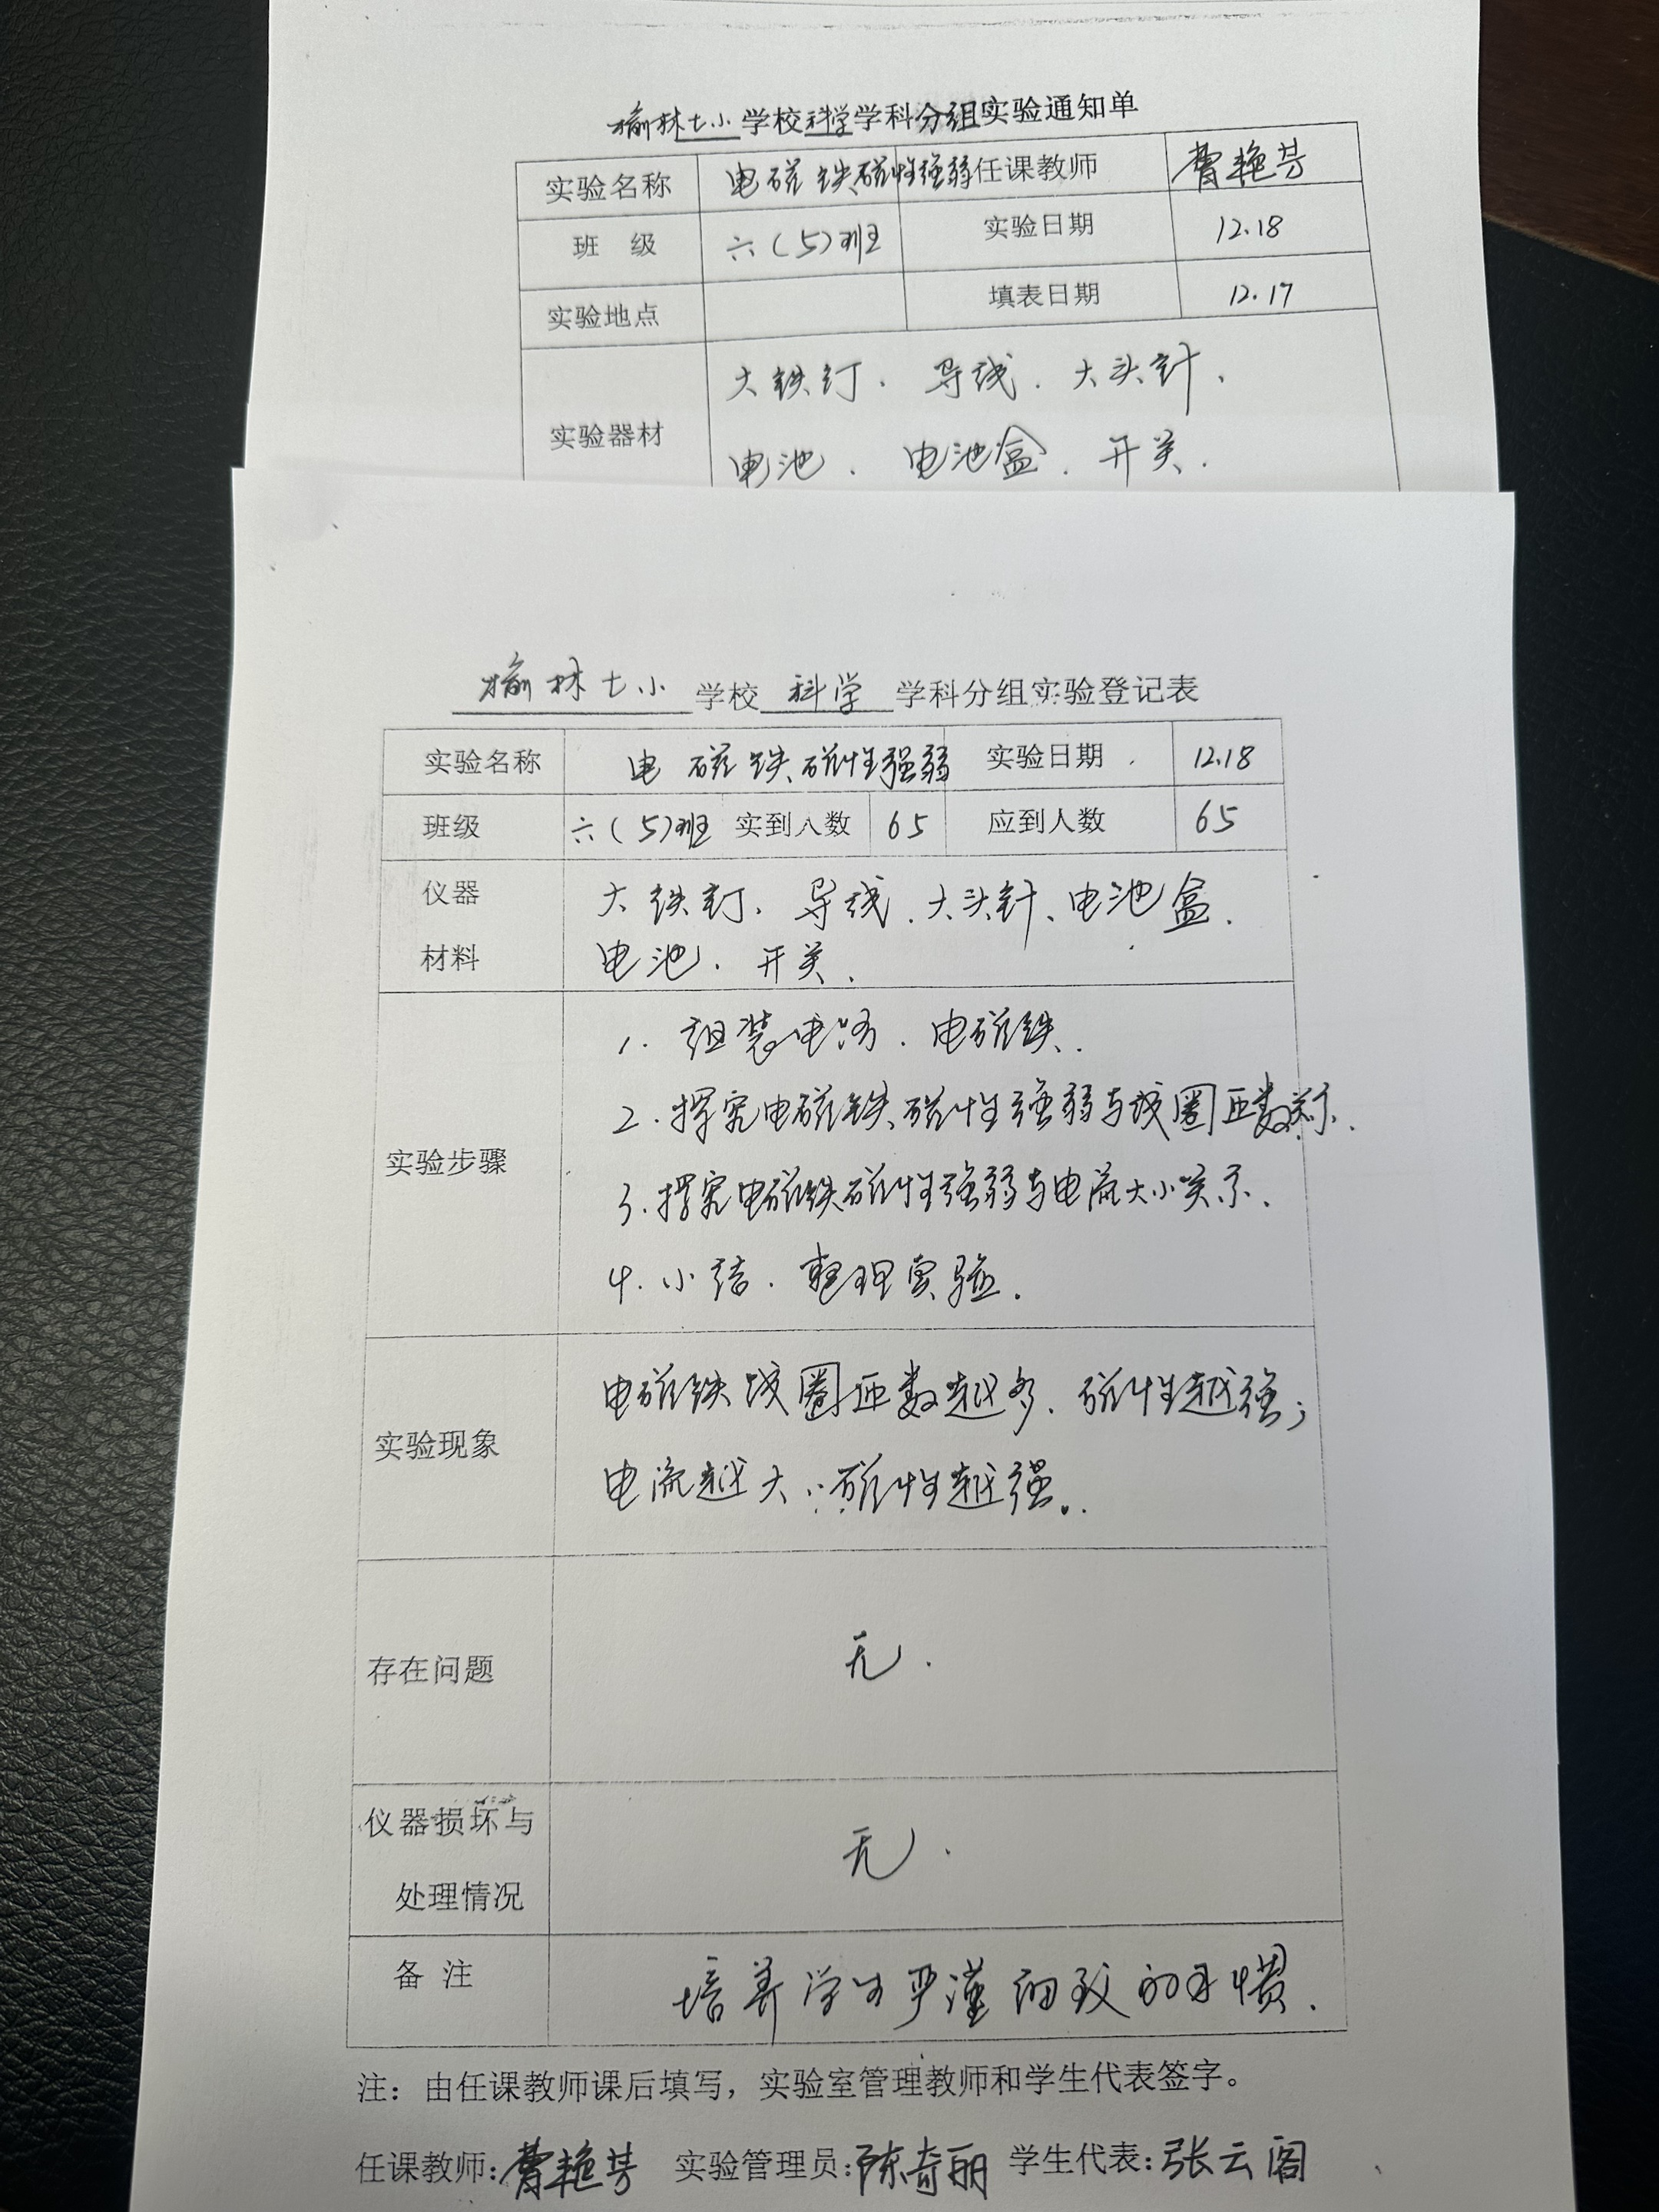 榆林七小学校科学学科分组实验通知单
实验名称 电磁铁磁性强弱 任课教师 曹艳芳
班 级 六(5)班 实验日期 12.18
实验地点 填表日期 12.17
大铁钉、导线、大头针、
实验器材
电池、电池盒、开关.
榆林七小 学校 科学 学科分组实验登记表
实验名称 电磁铁磁性强弱 实验日期 12.18
班级 六(5)班 实到人数 65 应到人数 65
仪器 大铁钉、导线、大头针、电池盒、
材料 电池、开关.
1. 组装电路、电磁铁.
2. 探究电磁铁磁性强弱与线圈匝数关系.
实验步骤
3. 探究电磁铁磁性强弱与电流大小关系.
4. 小结、整理实验.
电磁铁线圈匝数越多、磁性越强;
实验现象
电流越大、磁性越强.
存在问题 无.
仪器损坏与
处理情况 无.
备 注 培养学生严谨细致的习惯.
注：由任课教师课后填写，实验室管理教师和学生代表签字。
任课教师:曹艳芳 实验管理员:陈奇丽 学生代表:张云阁